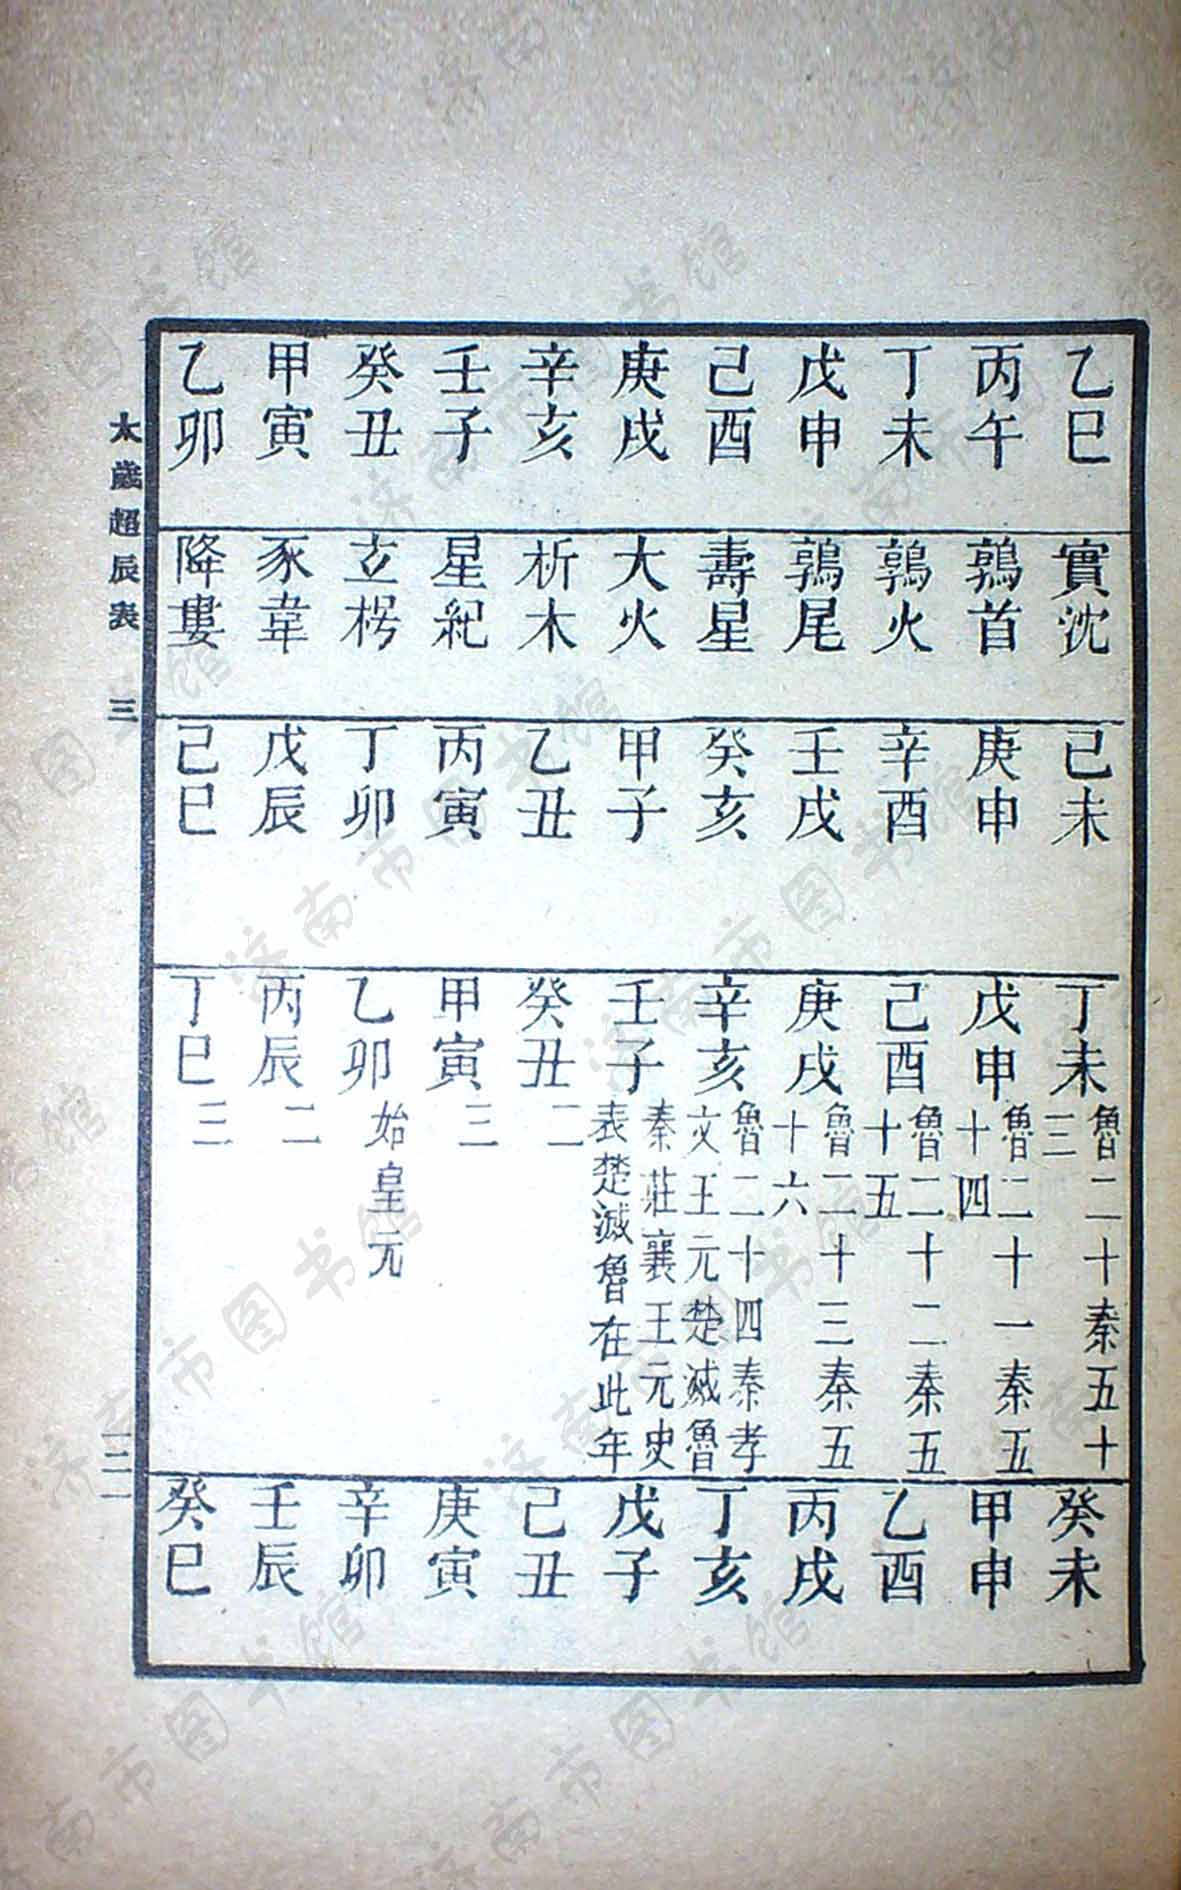 乙巳 實沈 己未 丁未 魯二十秦五十三 癸未
丙午 鶉首 庚申 戊申 魯二十一秦五十四 甲申
丁未 鶉火 辛酉 己酉 魯二十二秦五十五 乙酉
戊申 鶉尾 壬戌 庚戌 魯二十三秦五十六 丙戌
己酉 壽星 癸亥 辛亥 魯二十四秦孝文王元楚滅魯 丁亥
庚戌 大火 甲子 壬子 秦莊襄王元史表楚滅魯在此年 戊子
辛亥 析木 乙丑 癸丑 二 己丑
壬子 星紀 丙寅 甲寅 三 庚寅
癸丑 玄枵 丁卯 乙卯 始皇元 辛卯
甲寅 豕韋 戊辰 丙辰 二 壬辰
乙卯 降婁 己巳 丁巳 三 癸巳
太歲超辰表 三
济南市图书馆